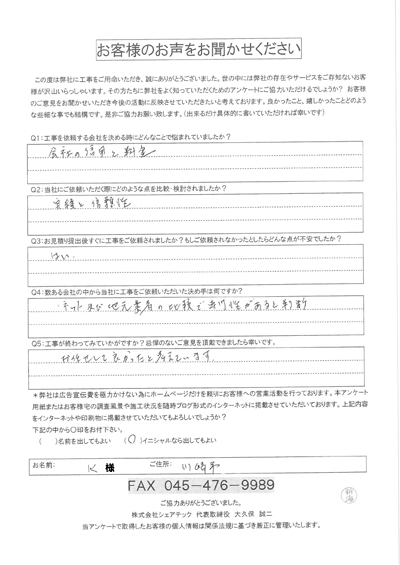 お客様のお声をお聞かせください
この度は弊社に工事をご用命いただき、誠にありがとうございました。世の中には弊社の存在やサービスをご存知ないお客
様が沢山いらっしゃいます。その方たちに弊社をよく知っていただくためのアンケートにご協力いただけるでしょうか？ お客様
のご意見をお聞かせいただき今後の活動に反映させていただきたいと考えております。良かったこと、嬉しかったことどのよう
な些細な事でも結構です。是非ご協力お願い致します。(出来るだけ具体的に書いていただければ幸いです)
Q1:工事を依頼する会社を決める時にどんなことで悩まれていましたか？
会社の信用と料金
Q2:当社にご依頼いただく際にどのような点を比較・検討されましたか？
実績と信頼性
Q3:お見積り提出後すぐに工事をご依頼されましたか？もしご依頼されなかったとしたらどんな点が不安でしたか？
はい
Q4:数ある会社の中から当社に工事をご依頼いただいた決め手は何ですか？
・ネット及び地元業者の比較で専門性があると判断
Q5:工事が終わってみていかがですか？忌憚のないご意見を頂戴できましたら幸いです。
お任せして良かったと考えています。
＊弊社は広告宣伝費を極力かけない為にホームページだけを頼りにお客様への営業活動を行っております。本アンケート
用紙またはお客様宅の調査風景や施工状況を随時ブログ形式のインターネットに掲載させていただいております。上記内容
をインターネットや印刷物に掲載させていただいてもよろしいでしょうか？
下記の中から〇印をお付下さい。
(　)名前を出してもよい (〇)イニシャルなら出してもよい
お名前: K 様 ご住所: 川崎市
FAX 045-476-9989
ご協力ありがとうございました。
株式会社シェアテック 代表取締役 大久保 誠二
当アンケートで取得したお客様の個人情報は関係法規に基づき厳正に管理いたします。